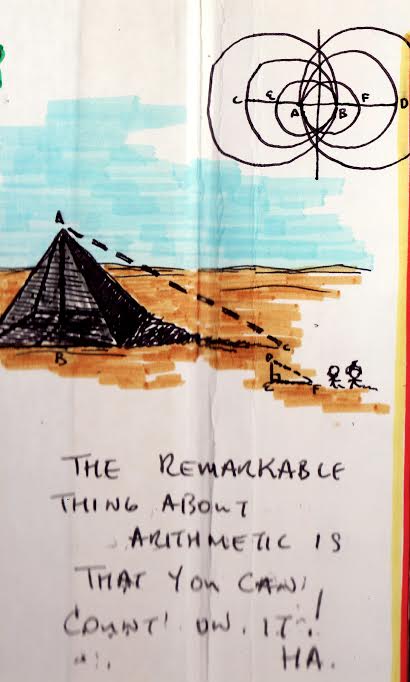 C E A B F D
A
C
B
D
E F
THE REMARKABLE
THING ABOUT
ARITHMETIC IS
THAT YOU CAN
COUNT ON IT!
HA.